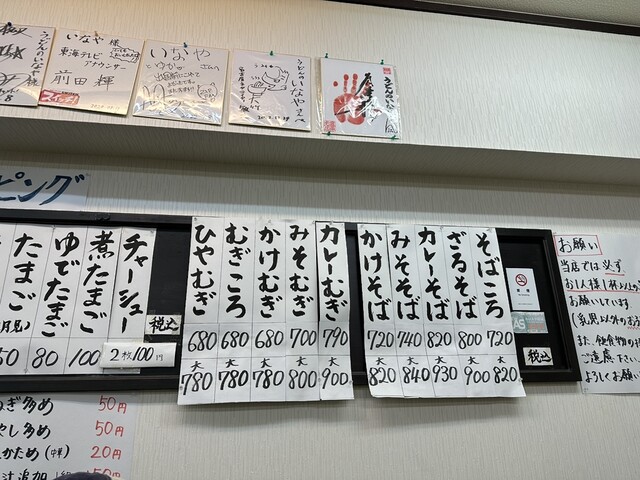 うどんのいなや様
いなや様
東海テレビ
アナウンサー
前田 輝
スイッチ!
いなや
さんへ
うどんのいなやさんへ
うどんのいなや
ピング
チャーシュー
2枚100円
煮たまご
100
ゆでたまご
80
たまご
50
税込
カレーむぎ
790
大
900
みそむぎ
700
大
800
かけむぎ
680
大
780
むぎころ
680
大
780
ひやむぎ
680
大
780
そばころ
720
大
820
ざるそば
800
大
900
カレーそば
820
大
930
みそそば
740
大
840
かけそば
720
大
820
税込
お願い
当店では必ず
お1人様1杯以上の
お願いしています
(乳児以外のお
また、飲食物の持
ご遠慮下さい
よろしくお願い
ねぎ多め 50円
やし多め 50円
かため(中華) 20円
汁追加 50円